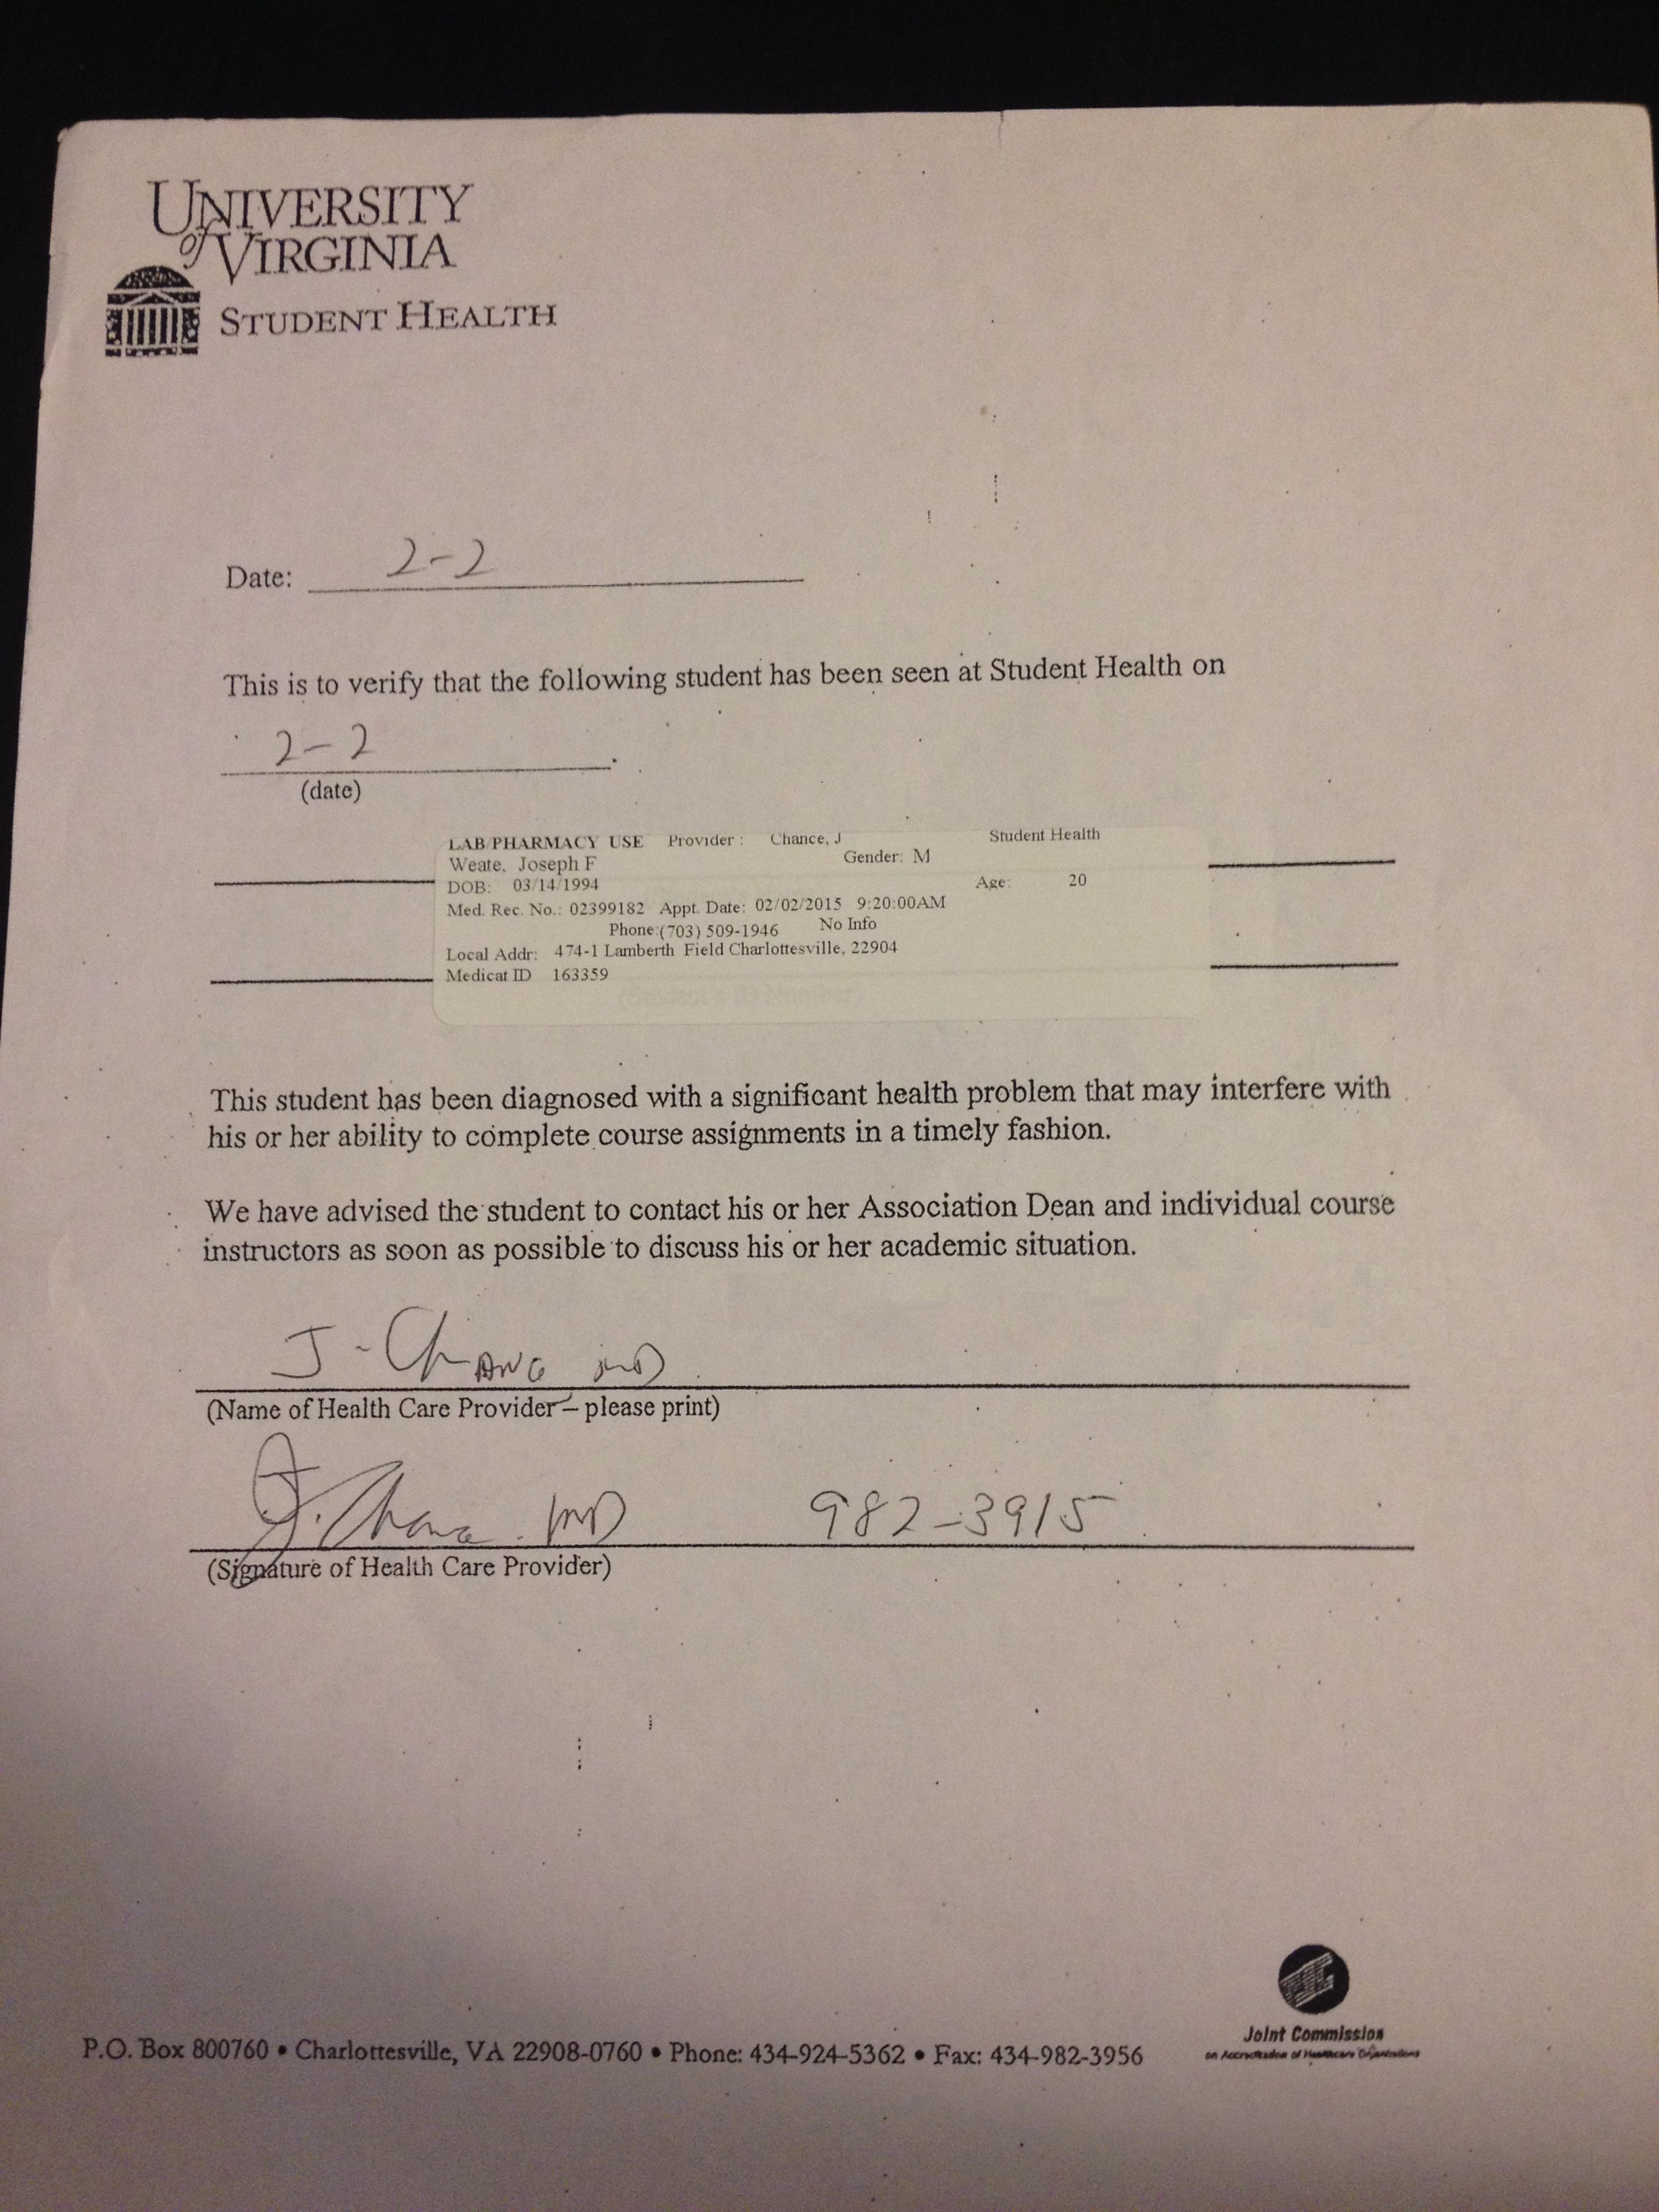 UNIVERSITY
of VIRGINIA
STUDENT HEALTH
Date: 2-2
This is to verify that the following student has been seen at Student Health on
2-2.
(date)
LAB/PHARMACY USE Provider : Chance, J Student Health
Weate, Joseph F Gender: M
DOB: 03/14/1994 Age: 20
Med. Rec. No.: 02399182 Appt. Date: 02/02/2015 9:20:00AM
Phone:(703) 509-1946 No Info
Local Addr: 474-1 Lamberth Field Charlottesville, 22904
Medicat ID 163359
(Student's ID Number)
This student has been diagnosed with a significant health problem that may interfere with
his or her ability to complete course assignments in a timely fashion.
We have advised the student to contact his or her Association Dean and individual course
instructors as soon as possible to discuss his or her academic situation.
J-Chang MD
(Name of Health Care Provider – please print)
J. Chang MD 982-3915
(Signature of Health Care Provider)
Joint Commission
on Accreditation of Healthcare Organizations
P.O. Box 800760 • Charlottesville, VA 22908-0760 • Phone: 434-924-5362 • Fax: 434-982-3956